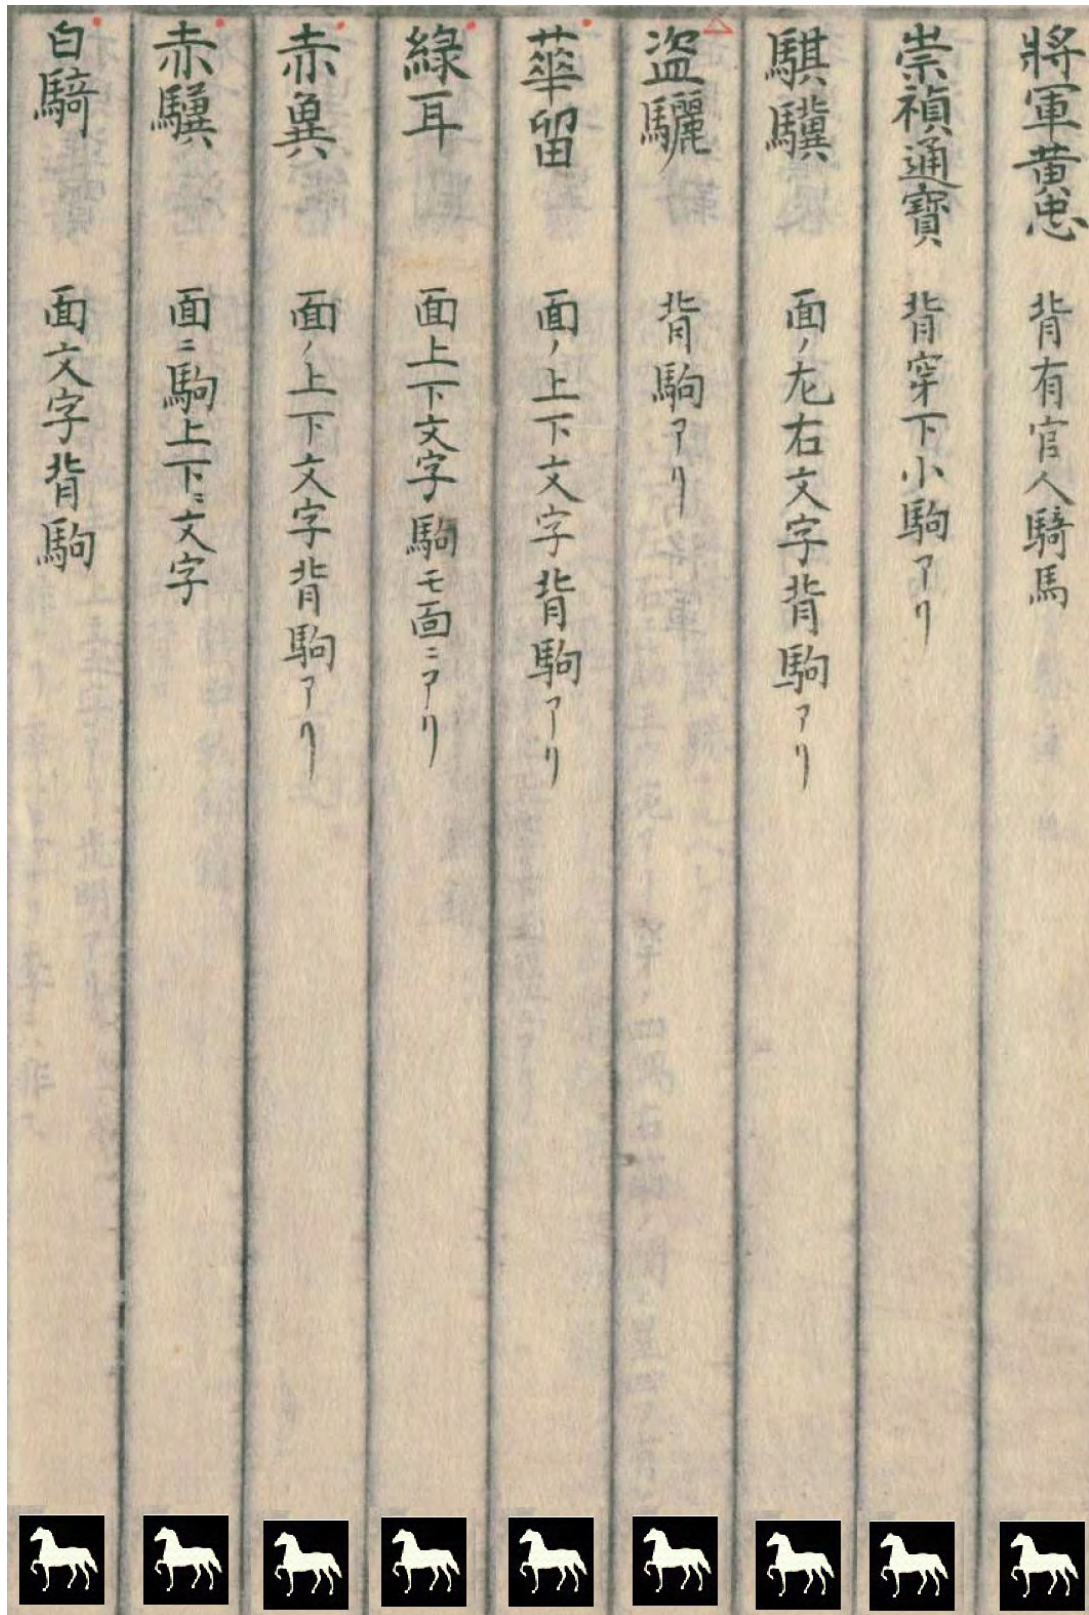 將軍黄忠 背有官人騎馬
崇禎通寳 背穿下小駒アリ
騏驥 面ノ左右文字背駒アリ
盗驪 背駒アリ
華留 面ノ上下文字背駒アリ
綠耳 面上下文字駒モ面ニアリ
赤兾 面ノ上下文字背駒アリ
赤驥 面ニ駒上下ニ文字
白騎 面文字背駒